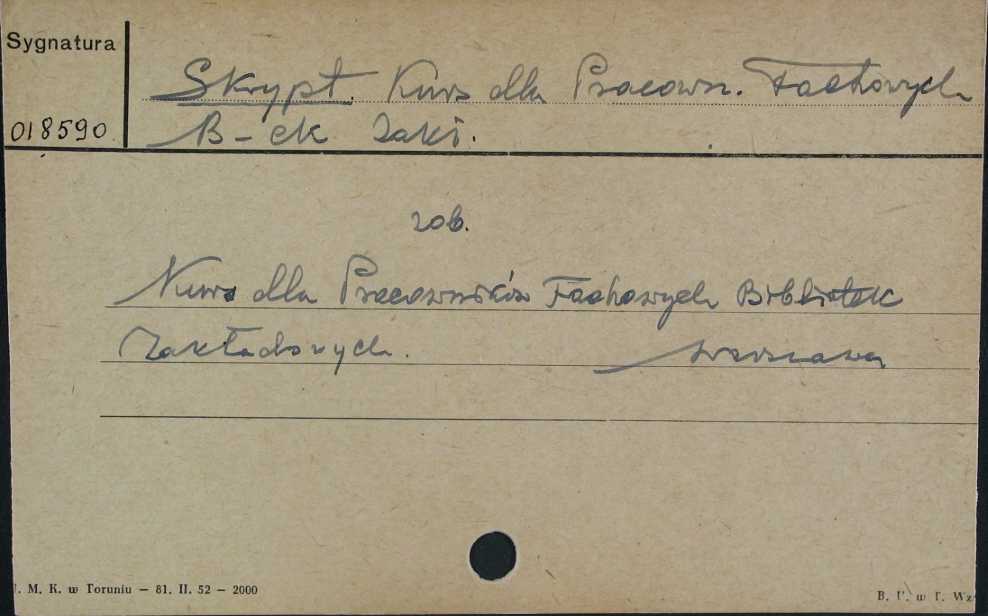 Sygnatura
Skrypt. Kurs dla Pracown. Fachowych
018590 B-ek Zakł.
zob.
Kurs dla Pracowników Fachowych Bibliotek
Zakładowych. Warszawa
. M. K. w Toruniu — 81. II. 52 — 2000
B. U. w T. Wz